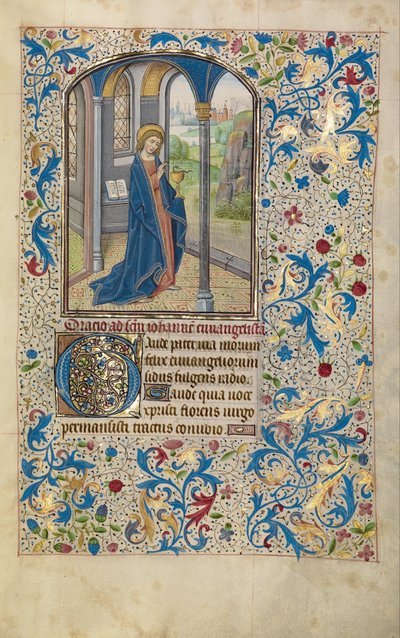 Oratio ad sc̄m iohannē euuangelistā
Gaude pater via morum
felix euuangeliorum
sidus fulgens radio.
Gaude qua voce
expristi florens virgo
permansisti tinctus conubio.